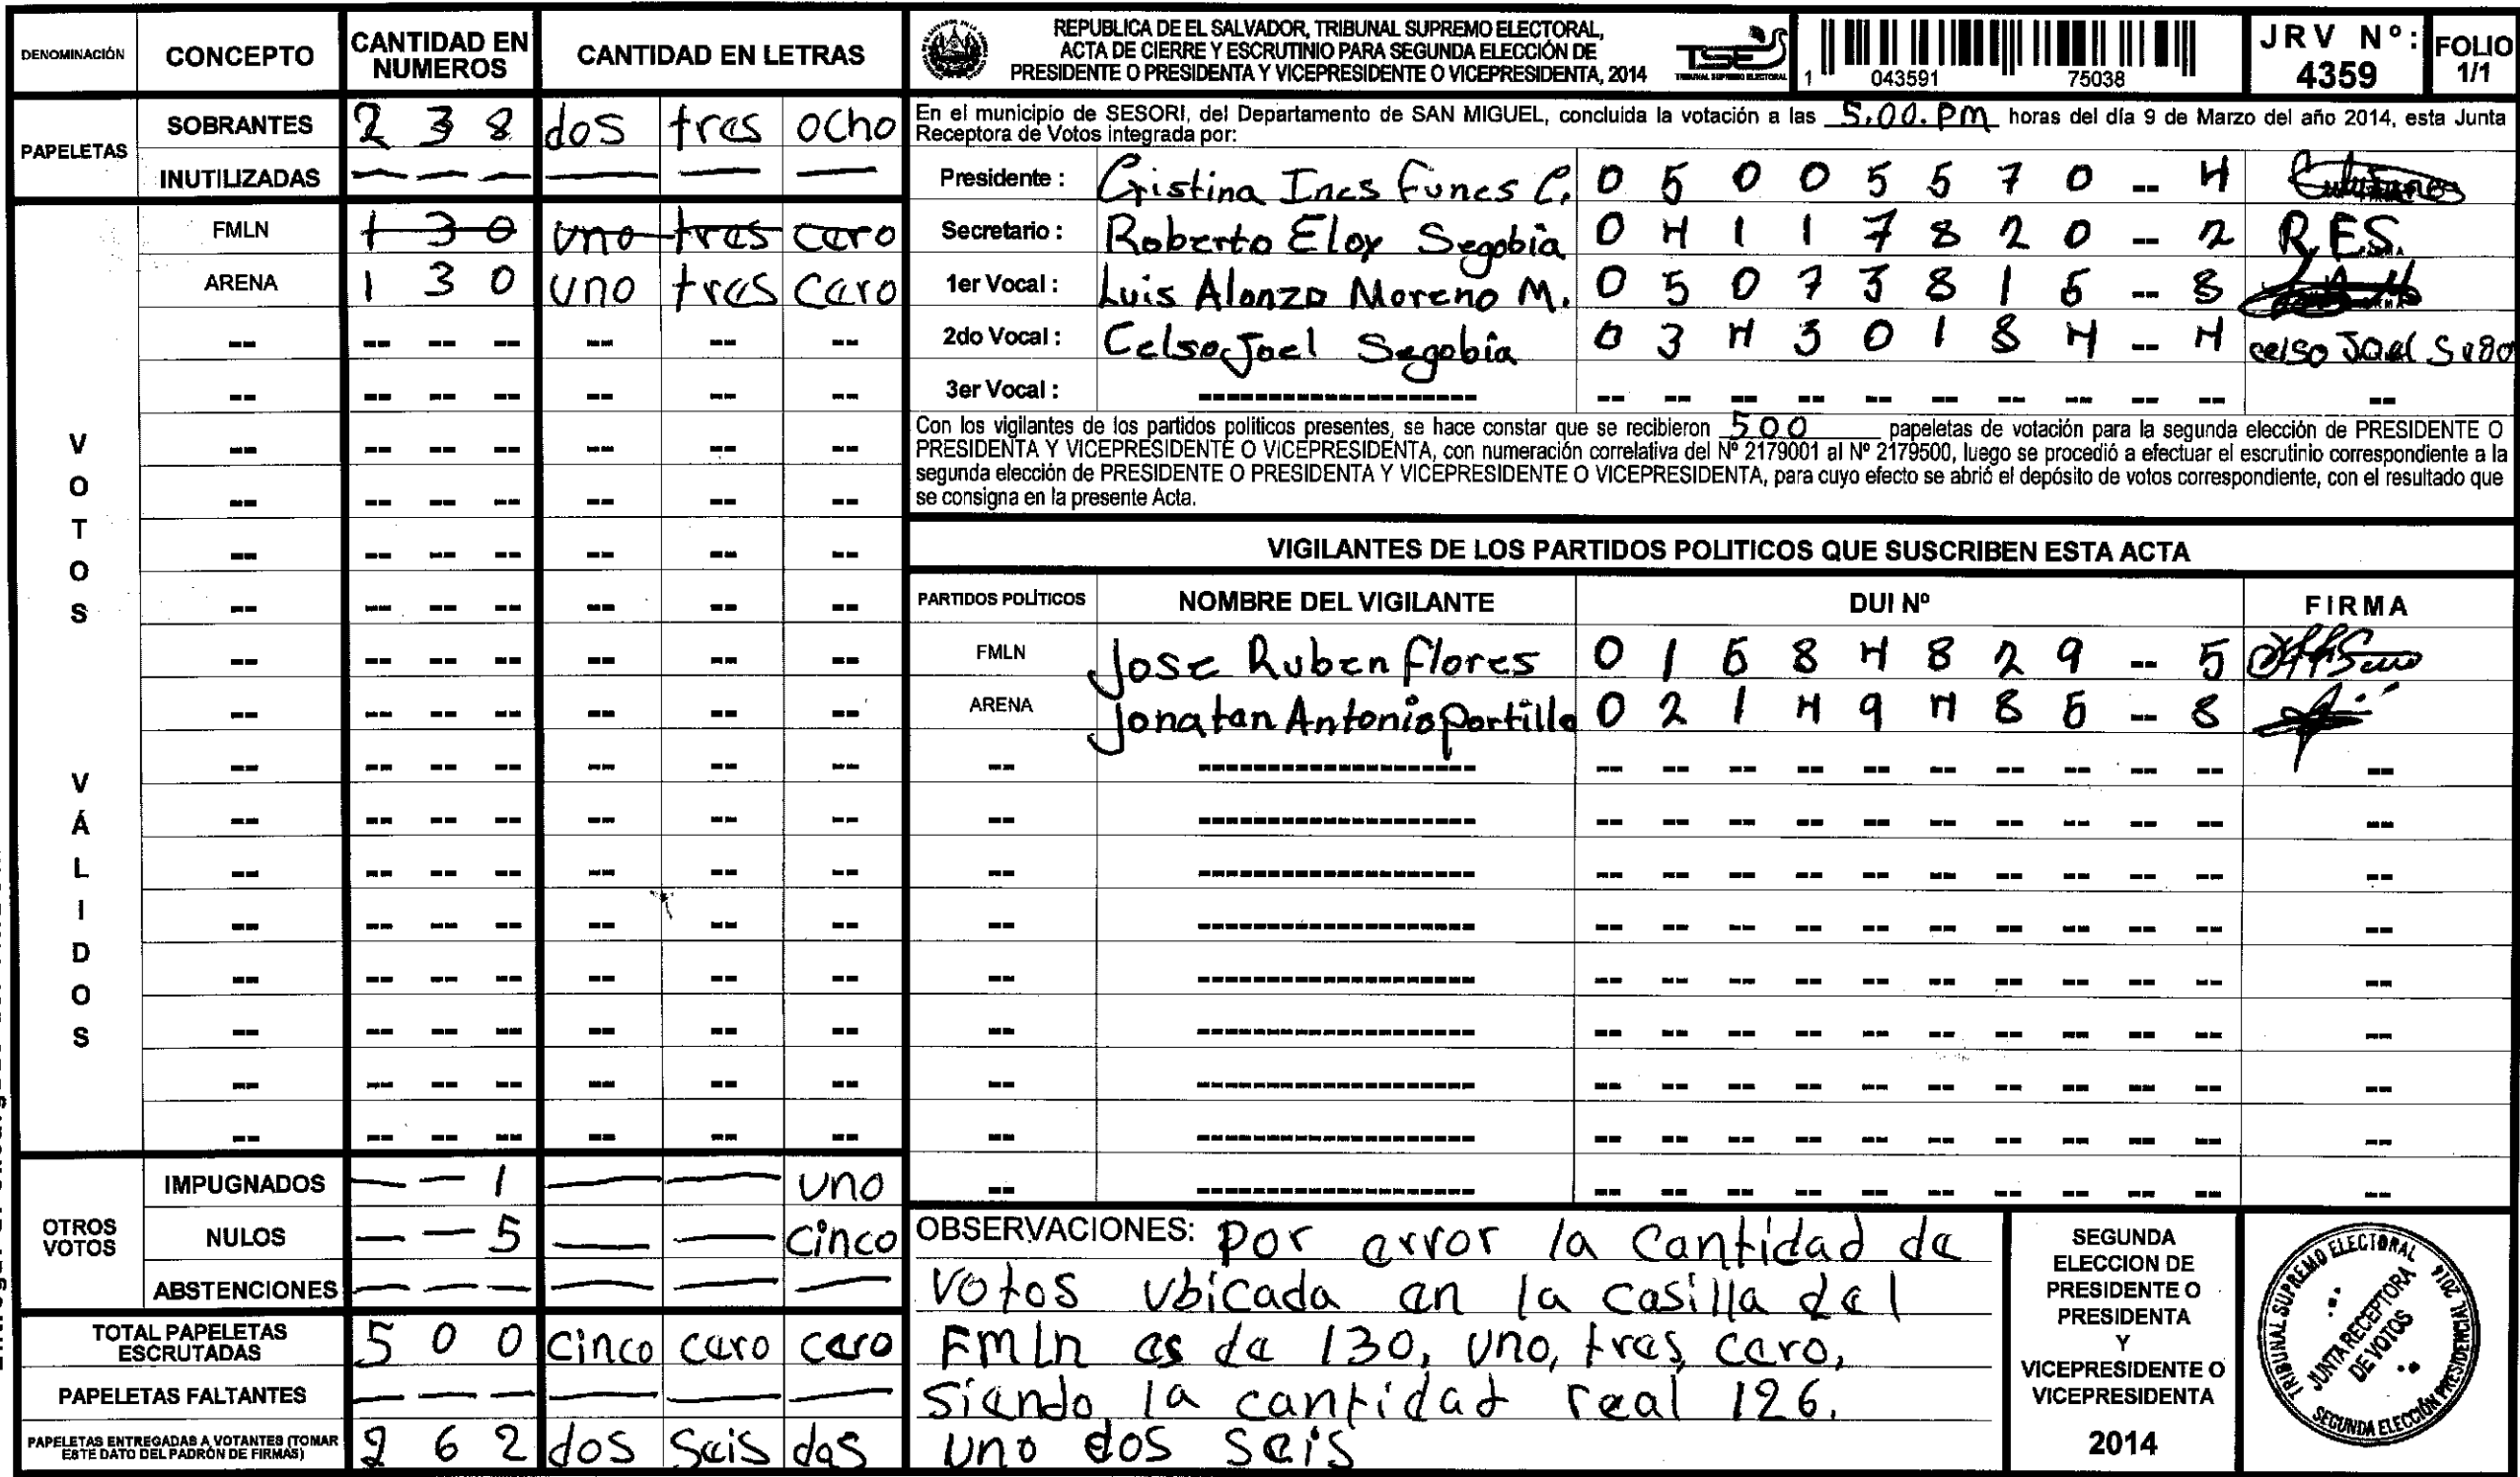 DENOMINACIÓN CONCEPTO CANTIDAD EN NUMEROS CANTIDAD EN LETRAS
PAPELETAS
SOBRANTES 2 3 8 dos tres ocho
INUTILIZADAS — — — — — —
VOTOS VÁLIDOS
FMLN 1 3 0 uno tres cero
ARENA 1 3 0 uno tres cero
OTROS VOTOS
IMPUGNADOS — — 1 — — uno
NULOS — — 5 — — cinco
ABSTENCIONES — — — — — —
TOTAL PAPELETAS ESCRUTADAS 5 0 0 cinco cero cero
PAPELETAS FALTANTES — — — — — —
PAPELETAS ENTREGADAS A VOTANTES (TOMAR ESTE DATO DEL PADRÓN DE FIRMAS) 2 6 2 dos seis dos
REPUBLICA DE EL SALVADOR, TRIBUNAL SUPREMO ELECTORAL,
ACTA DE CIERRE Y ESCRUTINIO PARA SEGUNDA ELECCIÓN DE
PRESIDENTE O PRESIDENTA Y VICEPRESIDENTE O VICEPRESIDENTA, 2014
TSE
TRIBUNAL SUPREMO ELECTORAL
1 043591 75038
JRV Nº: 4359
FOLIO 1/1
En el municipio de SESORI, del Departamento de SAN MIGUEL, concluida la votación a las 5.00.PM horas del día 9 de Marzo del año 2014, esta Junta
Receptora de Votos integrada por:
Presidente : Cristina Ines Funes C. 0 5 0 0 5 5 7 0 -- 4
Secretario : Roberto Eloy Segobia 0 4 1 1 7 8 2 0 -- 2 R.E.S.
1er Vocal : Luis Alonzo Moreno M. 0 5 0 7 3 8 1 6 -- 8
2do Vocal : Celso Joel Segobia 0 3 4 3 0 1 8 4 -- 4 celso Joel
3er Vocal :
Con los vigilantes de los partidos políticos presentes, se hace constar que se recibieron 500 papeletas de votación para la segunda elección de PRESIDENTE O
PRESIDENTA Y VICEPRESIDENTE O VICEPRESIDENTA, con numeración correlativa del Nº 2179001 al Nº 2179500, luego se procedió a efectuar el escrutinio correspondiente a la
segunda elección de PRESIDENTE O PRESIDENTA Y VICEPRESIDENTE O VICEPRESIDENTA, para cuyo efecto se abrió el depósito de votos correspondiente, con el resultado que
se consigna en la presente Acta.
VIGILANTES DE LOS PARTIDOS POLITICOS QUE SUSCRIBEN ESTA ACTA
PARTIDOS POLÍTICOS NOMBRE DEL VIGILANTE DUI Nº FIRMA
FMLN Jose Ruben flores 0 1 6 8 4 8 2 9 -- 5
ARENA Jonatan Antonio Portillo 0 2 1 4 9 4 8 6 -- 8
OBSERVACIONES: por error la cantidad de
votos ubicada en la casilla del
Fmln es de 130, uno, tres cero,
siendo la cantidad real 126.
uno dos seis
SEGUNDA
ELECCION DE
PRESIDENTE O
PRESIDENTA
Y
VICEPRESIDENTE O
VICEPRESIDENTA
2014
TRIBUNAL SUPREMO ELECTORAL
JUNTA RECEPTORA
DE VOTOS
SEGUNDA ELECCIÓN PRESIDENCIAL 2014